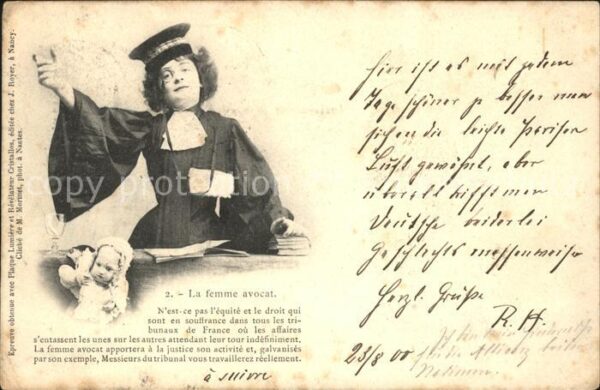 Epreuve obtenue avec Plaque Lumière et Révélateur Cristallos, éditée chez J. Royer, à Nancy.
Cliché de M. Morinet, phot. à Nantes.
2. - La femme avocat.
N'est-ce pas l'équité et le droit qui
sont en souffrance dans tous les tri-
bunaux de France où les affaires
s'entassent les unes sur les autres attendant leur tour indéfiniment.
La femme avocat apportera à la justice son activité et, galvanisés
par son exemple, Messieurs du tribunal vous travaillerez réellement.
à suivre
hier ist es mit jedem
Tage schöner je besser man
sich an die leichte Pariser
Luft gewöhnt, aber
überall trifft man
Deutsche beiderlei
Geschlechts massenweise
Herzl. Grüße
R. H.
25/8 00